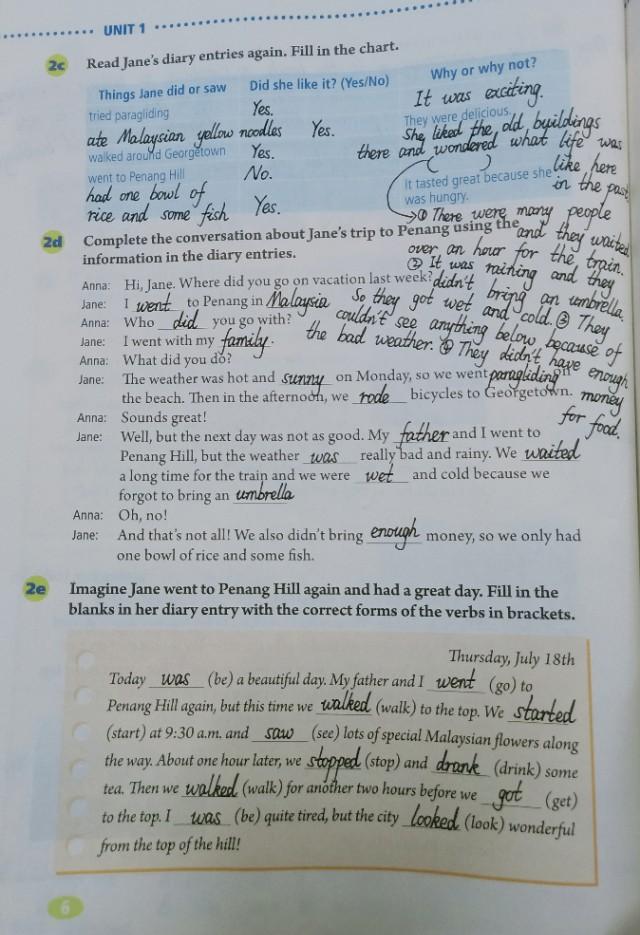 UNIT 1
2c Read Jane's diary entries again. Fill in the chart.
Things Jane did or saw Did she like it? (Yes/No) Why or why not?
tried paragliding Yes. It was exciting.
ate Malaysian yellow noodles Yes. They were delicious
walked around Georgetown Yes. She liked the old buildings
there and wondered what life was
like here
in the past
went to Penang Hill No.
had one bowl of
rice and some fish Yes. It tasted great because she
was hungry.
① There were many people
and they waited
over an hour for the train.
② It was raining and they
didn't bring an umbrella.
So they got wet and cold. ③ They
couldn't see anything below because of
the bad weather. ④ They didn't have enough
money
for food.
2d Complete the conversation about Jane's trip to Penang using the
information in the diary entries.
Anna: Hi, Jane. Where did you go on vacation last week?
Jane: I went to Penang in Malaysia
Anna: Who did you go with?
Jane: I went with my family.
Anna: What did you do?
Jane: The weather was hot and sunny on Monday, so we went paragliding on
the beach. Then in the afternoon, we rode bicycles to Georgetown.
Anna: Sounds great!
Jane: Well, but the next day was not as good. My father and I went to
Penang Hill, but the weather was really bad and rainy. We waited
a long time for the train and we were wet and cold because we
forgot to bring an umbrella
Anna: Oh, no!
Jane: And that's not all! We also didn't bring enough money, so we only had
one bowl of rice and some fish.
2e Imagine Jane went to Penang Hill again and had a great day. Fill in the
blanks in her diary entry with the correct forms of the verbs in brackets.
Thursday, July 18th
Today was (be) a beautiful day. My father and I went (go) to
Penang Hill again, but this time we walked (walk) to the top. We started
(start) at 9:30 a.m. and saw (see) lots of special Malaysian flowers along
the way. About one hour later, we stopped (stop) and drank (drink) some
tea. Then we walked (walk) for another two hours before we got (get)
to the top. I was (be) quite tired, but the city looked (look) wonderful
from the top of the hill!
6